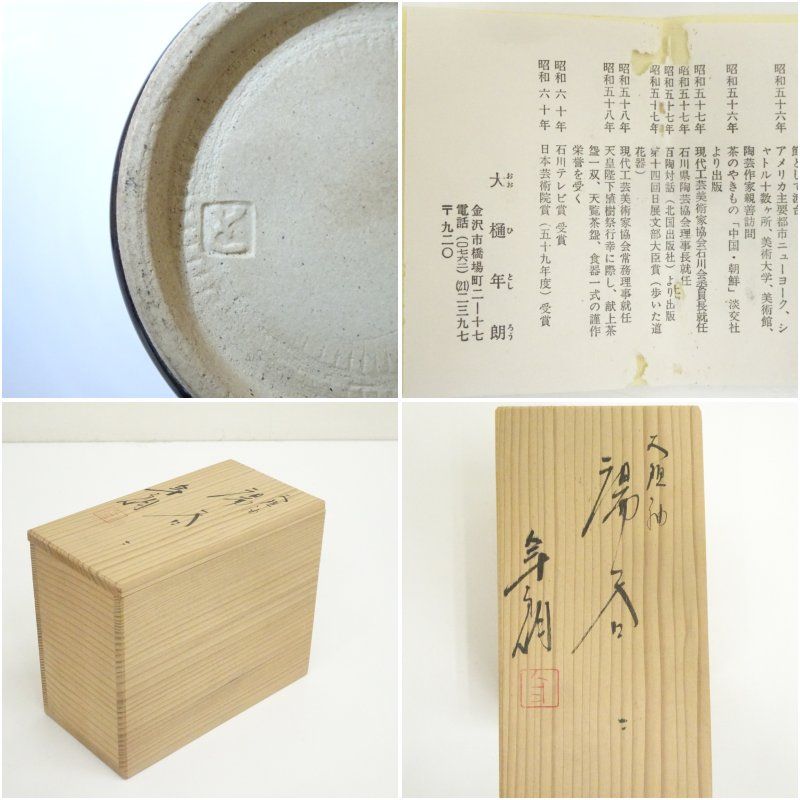 昭和五十六年
アメリカ主要都市ニューヨーク、シ
ャトル十数ヶ所、美術大学、美術館、
陶芸作家親善訪問
昭和五十六年
茶のやきもの「中国・朝鮮」淡交社
より出版
昭和五十七年
現代工芸美術家協会石川会委員長就任
昭和五十七年
石川県陶芸協会理事長就任
昭和五十七年
百陶対話(北国出版社)より出版
昭和五十七年
第十四回日展文部大臣賞(歩いた道
花器)
昭和五十八年
現代工芸美術家協会常務理事就任
昭和五十八年
天皇陛下植樹祭行幸に際し、献上茶
盌一双、天覧茶盌、食器一式の謹作
栄誉を受く
昭和六十年
石川テレビ賞 受賞
昭和六十年
日本芸術院賞(五十九年度)受賞
大樋年朗
おおひとしろう
金沢市橋場町二ー十七
電話(〇七六二)(21)二三九七
〒九二〇
湯呑
年朗